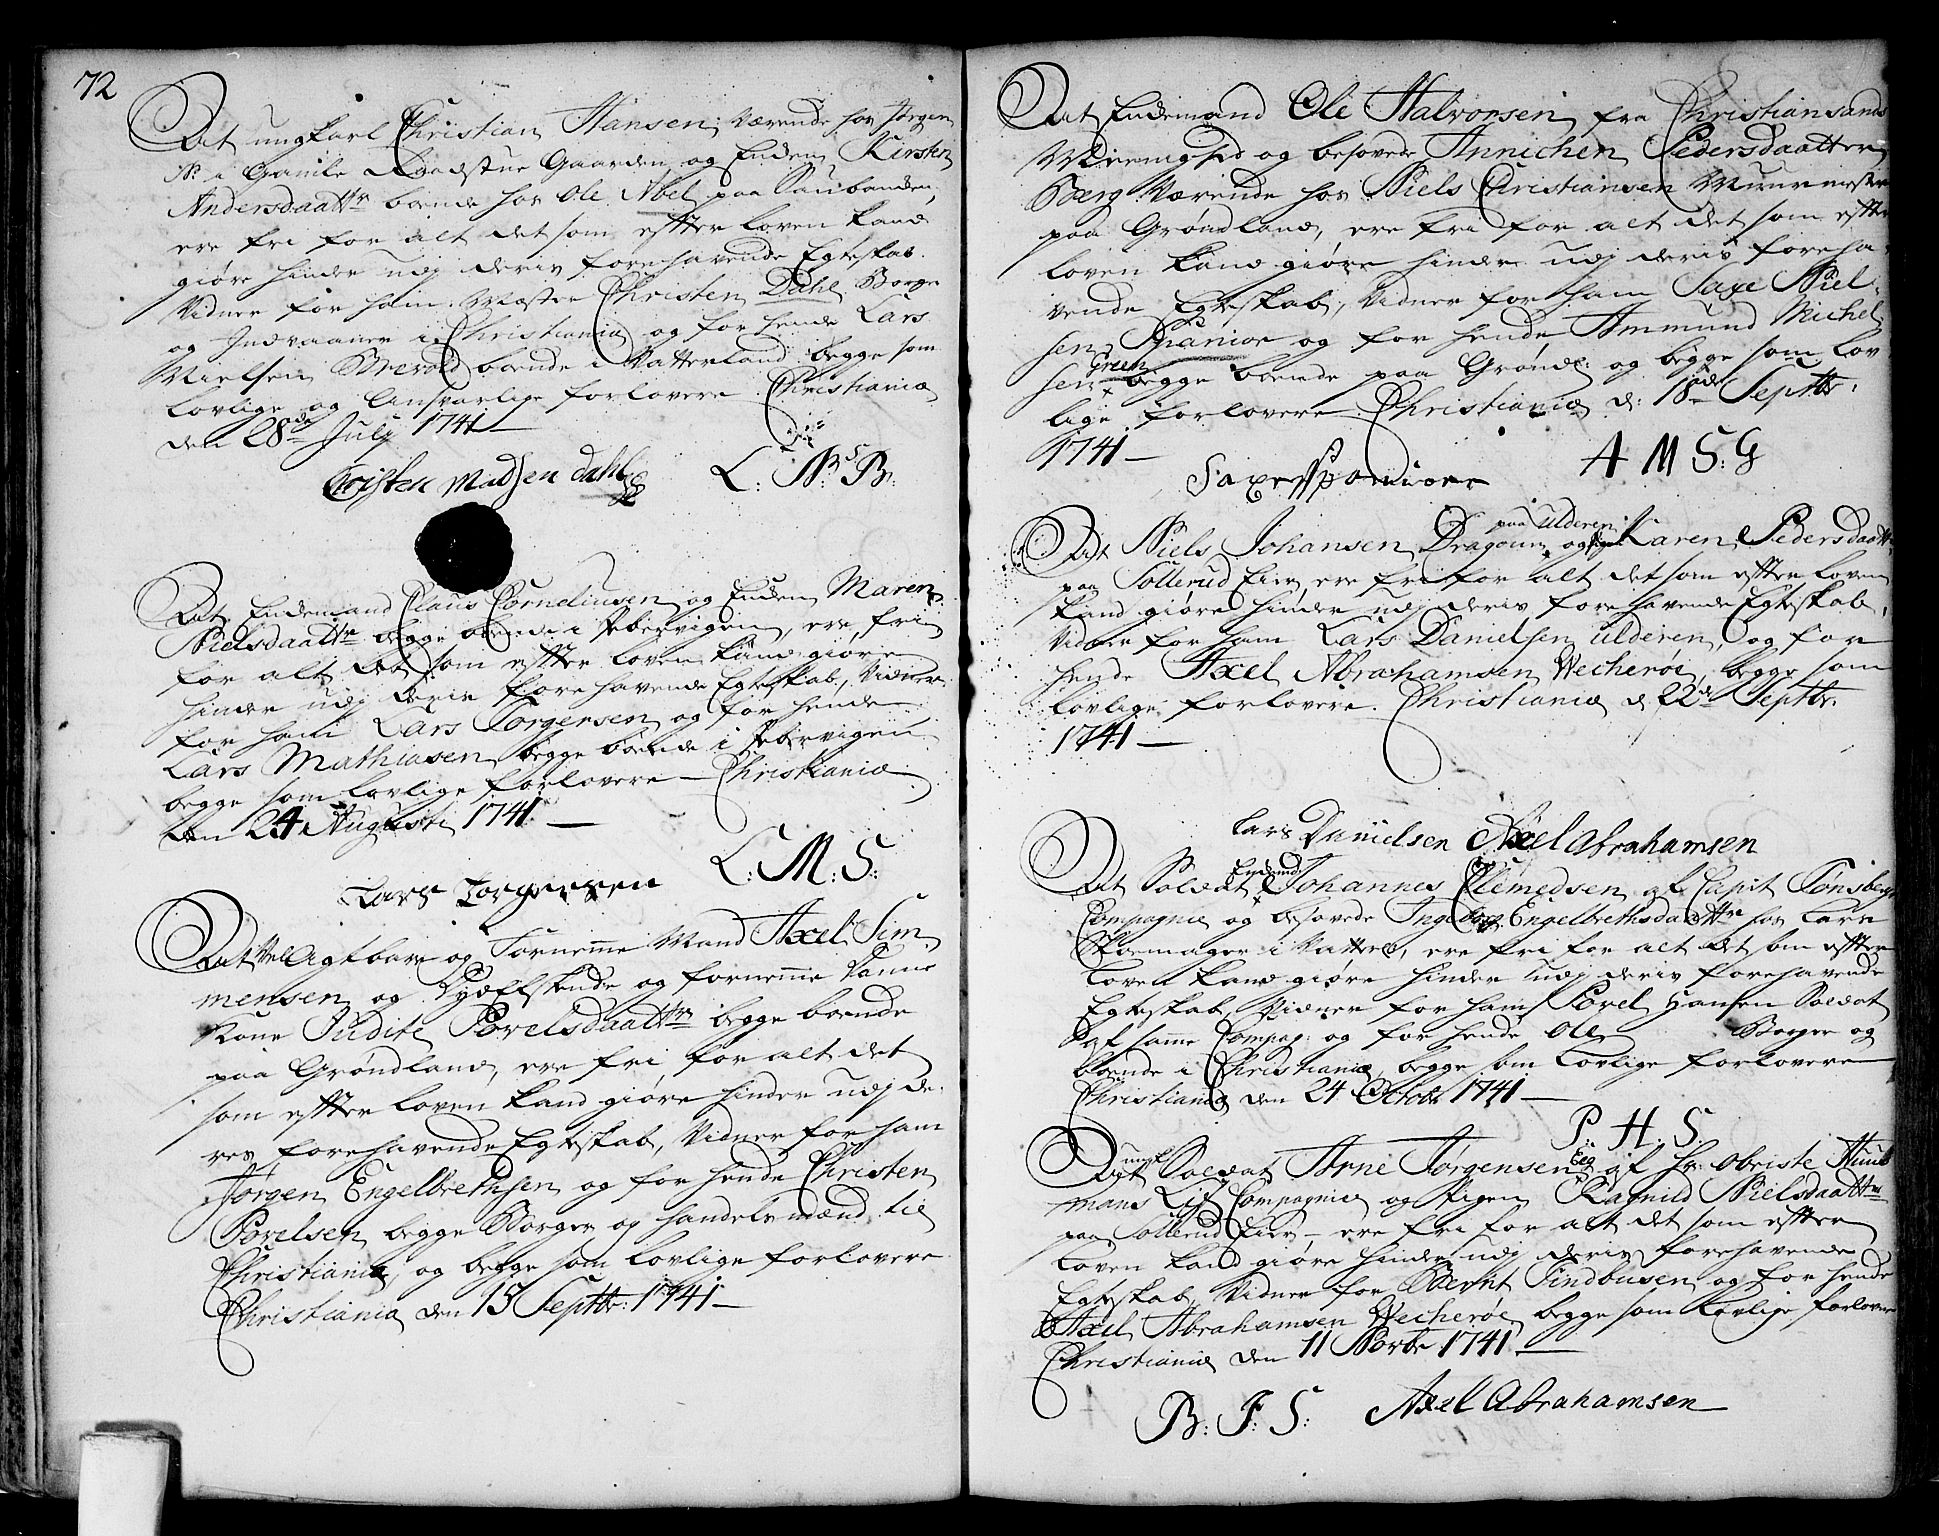 72
At ungkarl Christian Hansen, Værende hos Jørgen
N: i Gamle Raadstue Gaarden og Enken Kirsten
Andersdaattr boende hos Ole Abel paa Saubanden,
ere fri for alt det som effter loven kand
giøre hinder udj deris forehavende Egteskab.
Vidner for ham Mester Christen Dahl Borger
og Indvaaner i Christiania og for hende Lars
Nielsen boende i Vatterland begge som
lovlige og Ansvarlige forlovere. Christiania
den 28de July 1741
Cristen Madsen Dahl L: N:S B:
At Enkemand Claus Corneliusen og Enken Maren
Nielsdaattr begge boende i Pebervigen, ere fri
for alt det som effter loven kand giøre
hinder udj deris forehavende Egteskab, Vidner
for ham Lars Torgersen og for hende
Lars Mathiasen begge boende i Pebervigen
begge som lovlige forlovere Christiania
den 24 Augusti 1741.
Lars Torgersen L: M: S:
At Vel Agtbare og Fornemme Mand Axel Sim-
mensen og Dydelskende og fornemme Danne
Kone Judite Povelsdaattr begge boende
paa Grønland, ere fri for alt det
som effter loven kand giøre hinder udj de-
res forehavende Egteskab, Vidner for ham
Jørgen Engelbrethsen og for hende Christen
Povelsen begge Borger og handelsmænd til
Christiania, og begge som lovlige forlovere
Christiania den 15 Septbr: 1741
At Enkemand Ole Halvorsen fra Christiansands
og besovede Annichen Pedersdaatter
Berg Værende hos Niels Christiansen Muurmester
paa Grønland, ere fri for alt det som effter
loven kand giøre hinder udj deris foreha-
vende Egteskab, Vidner for ham Saxe Niel-
sen Spanior og for hende Ammund Michel
sen Green begge boende paa Grønl: og begge som lov
lige forlovere Christiania d: 18de Septbr:
1741
Saxe Spanior A M S: G
At Niels Johansen Dragoun paa Ulderen og pigen Karen Pedersdaattr
paa Sollerud Eier, ere fri for alt det som effter loven
kand giøre hinder udj deris forehavende Egteskab,
Vidner for ham Lars Danielsen Ulderen, og for
hende Axel Abrahamsen Vecherøe, begge som
lovlige forlovere. Christiania d. 22de Septbr.
1741
Lars Danielsen Axel Abrahamsen
At Soldat Enkemd: Johannes Clemedsen af Capit Tønsbergs
Compagnie og besovede Ingebor Engelbrethsdaattr hos Lars
Skomager i Vatterl, ere fri for alt det som effter
loven kand giøre hinder udj deris forehavende
Egteskab, Vidner for ham Povel Hansen Soldat
af samme Compag: og for hende Ole Borger og
boende i Christiania, begge som lovlige forlovere
Christiania den 24 Octobr 1741
P: H: S:
At ungk Soldat Arne Jørgensen Eeg af hr: Obriste
mans Lif Compagnie og Pigen Ragnild Nielsdaattr
paa Sollerud Eier, ere fri for alt det som effter
loven kand giøre hinder udj deris forehavende
Egteskab, Vidner for Bernt Findbusen, og for hende
Axel Abrahamsen Vecherøe, begge som lovlige forlovere
Christiania den 11 Novbr 1741
B: F: S: Axel Abrahamsen